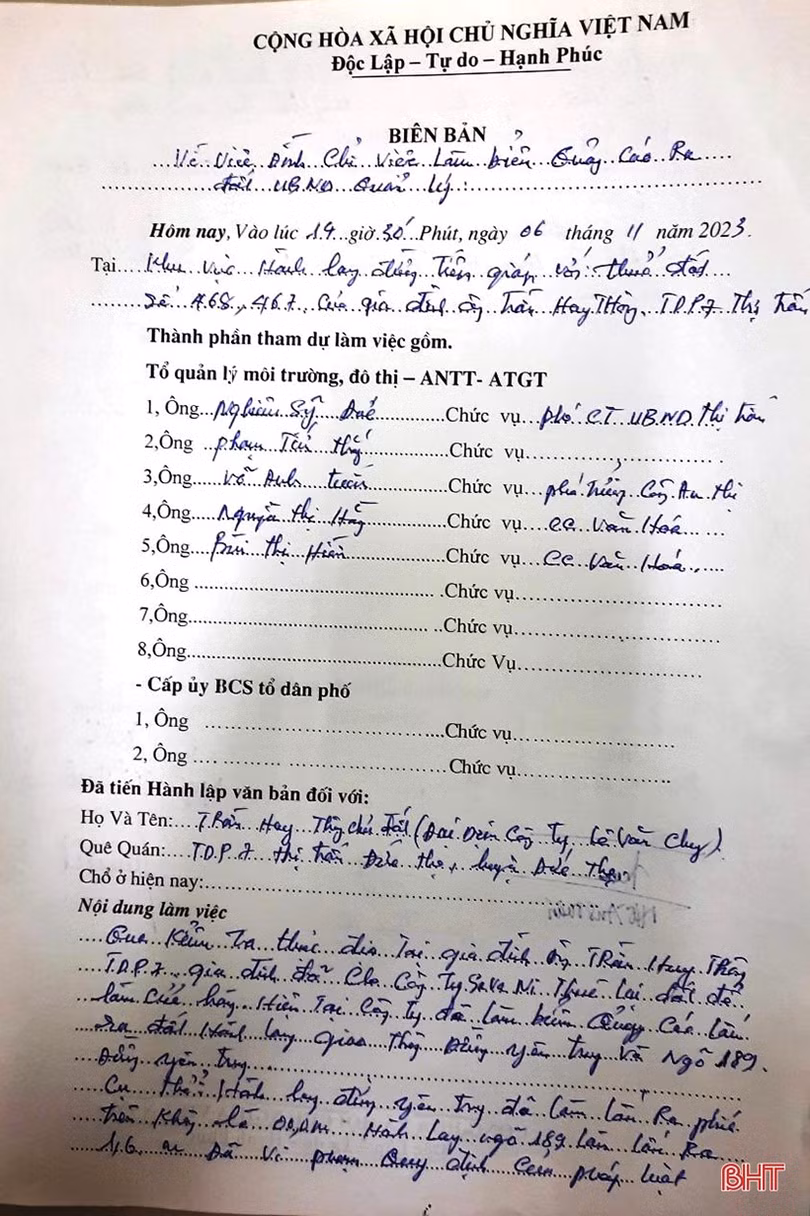 CỘNG HÒA XÃ HỘI CHỦ NGHĨA VIỆT NAM
Độc Lập – Tự do – Hạnh Phúc
BIÊN BẢN
Về Việc Đình Chỉ Việc Làm biển Quảng Cáo Ra
đất UBND Quản lý:
Hôm nay, Vào lúc 14 giờ 30 Phút, ngày 06 tháng 11 năm 2023.
Tại Khu vực Hành lang đường tiếp giáp với thửa đất
Số 468, 467, Của gia đình ông Trần Huy Thông, TDP 7 Thị trấn
Thành phần tham dự làm việc gồm.
Tổ quản lý môi trường, đô thị – ANTT- ATGT
1, Ông Nghiêm Sỹ Chức vụ phó CT UBND Thị trấn
2,Ông phạm Chức vụ
3,Ông Võ Anh tuấn Chức vụ phó trưởng Công An thị
4,Ông Nguyễn thị Chức vụ CC Văn Hoá
5,Ông Bùi thị Hiền Chức vụ CC Văn Hoá
6,Ông Chức vụ
7,Ông Chức vụ
8,Ông Chức Vụ
- Cấp ủy BCS tổ dân phố
1, Ông Chức vụ
2, Ông Chức vụ
Đã tiến Hành lập văn bản đối với:
Họ Và Tên: Trần Huy Thông chủ đất (Đại Diện Công Ty, Lê Văn)
Quê Quán: TDP 7 thị trấn Đức thọ, huyện Đức Thọ
Chổ ở hiện nay:
Nội dung làm việc
Qua Kiểm Tra thực địa Tại gia đình Ông Trần Huy Thông
TDP 7 gia đình đã Cho Công Ty SaVa Ni Thuê lại đất để
làm Cửa hàng Hiện Tại Công Ty đã làm biển Quảng Cáo lấn
Ra đất Hành lang giao Thông Đường yên trung Và Ngõ 189.
Đường yên trung
Cụ thể Hành lang đường yên trung đã làm lấn Ra phía
trên Không là Hành lang ngõ 189 làm lấn Ra
1,6 m Đã Vi phạm Quy định Của pháp luật
BHT